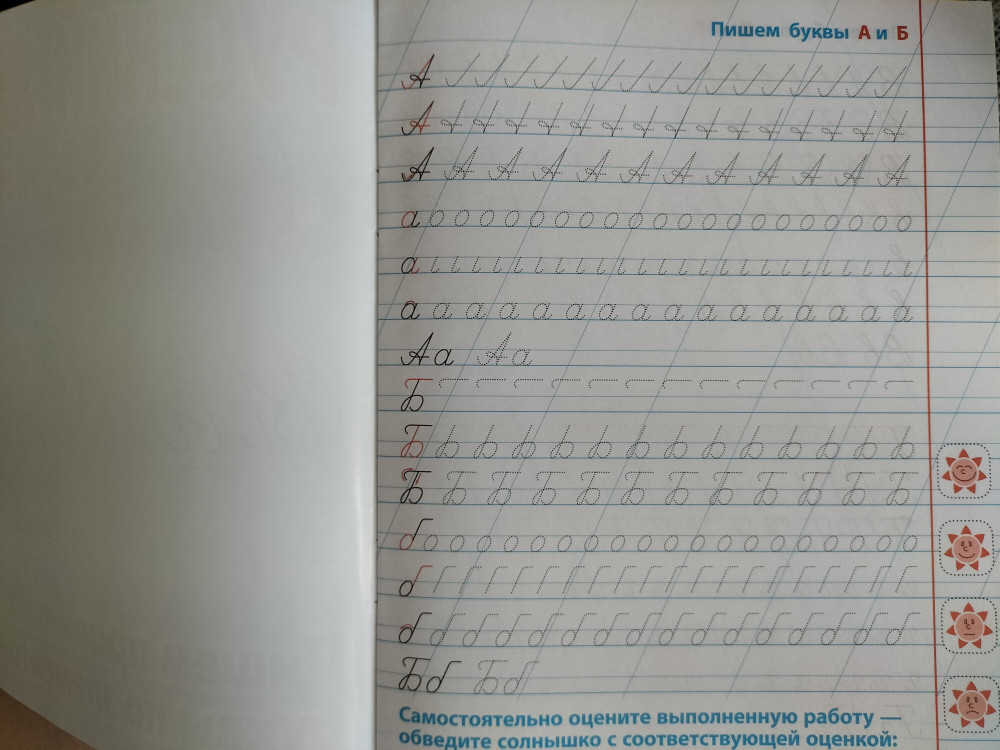 Пишем буквы А и Б
А
А
А А А А А А А А А А А А
а
а
а а а а а а а а а а а а а а а а
Аа Аа
Б
Б
Б Б Б Б Б Б Б Б Б Б Б Б
б
б
б б б б б б б б б б б б б б б б
Бб Бб
Самостоятельно оцените выполненную работу —
обведите солнышко с соответствующей оценкой: